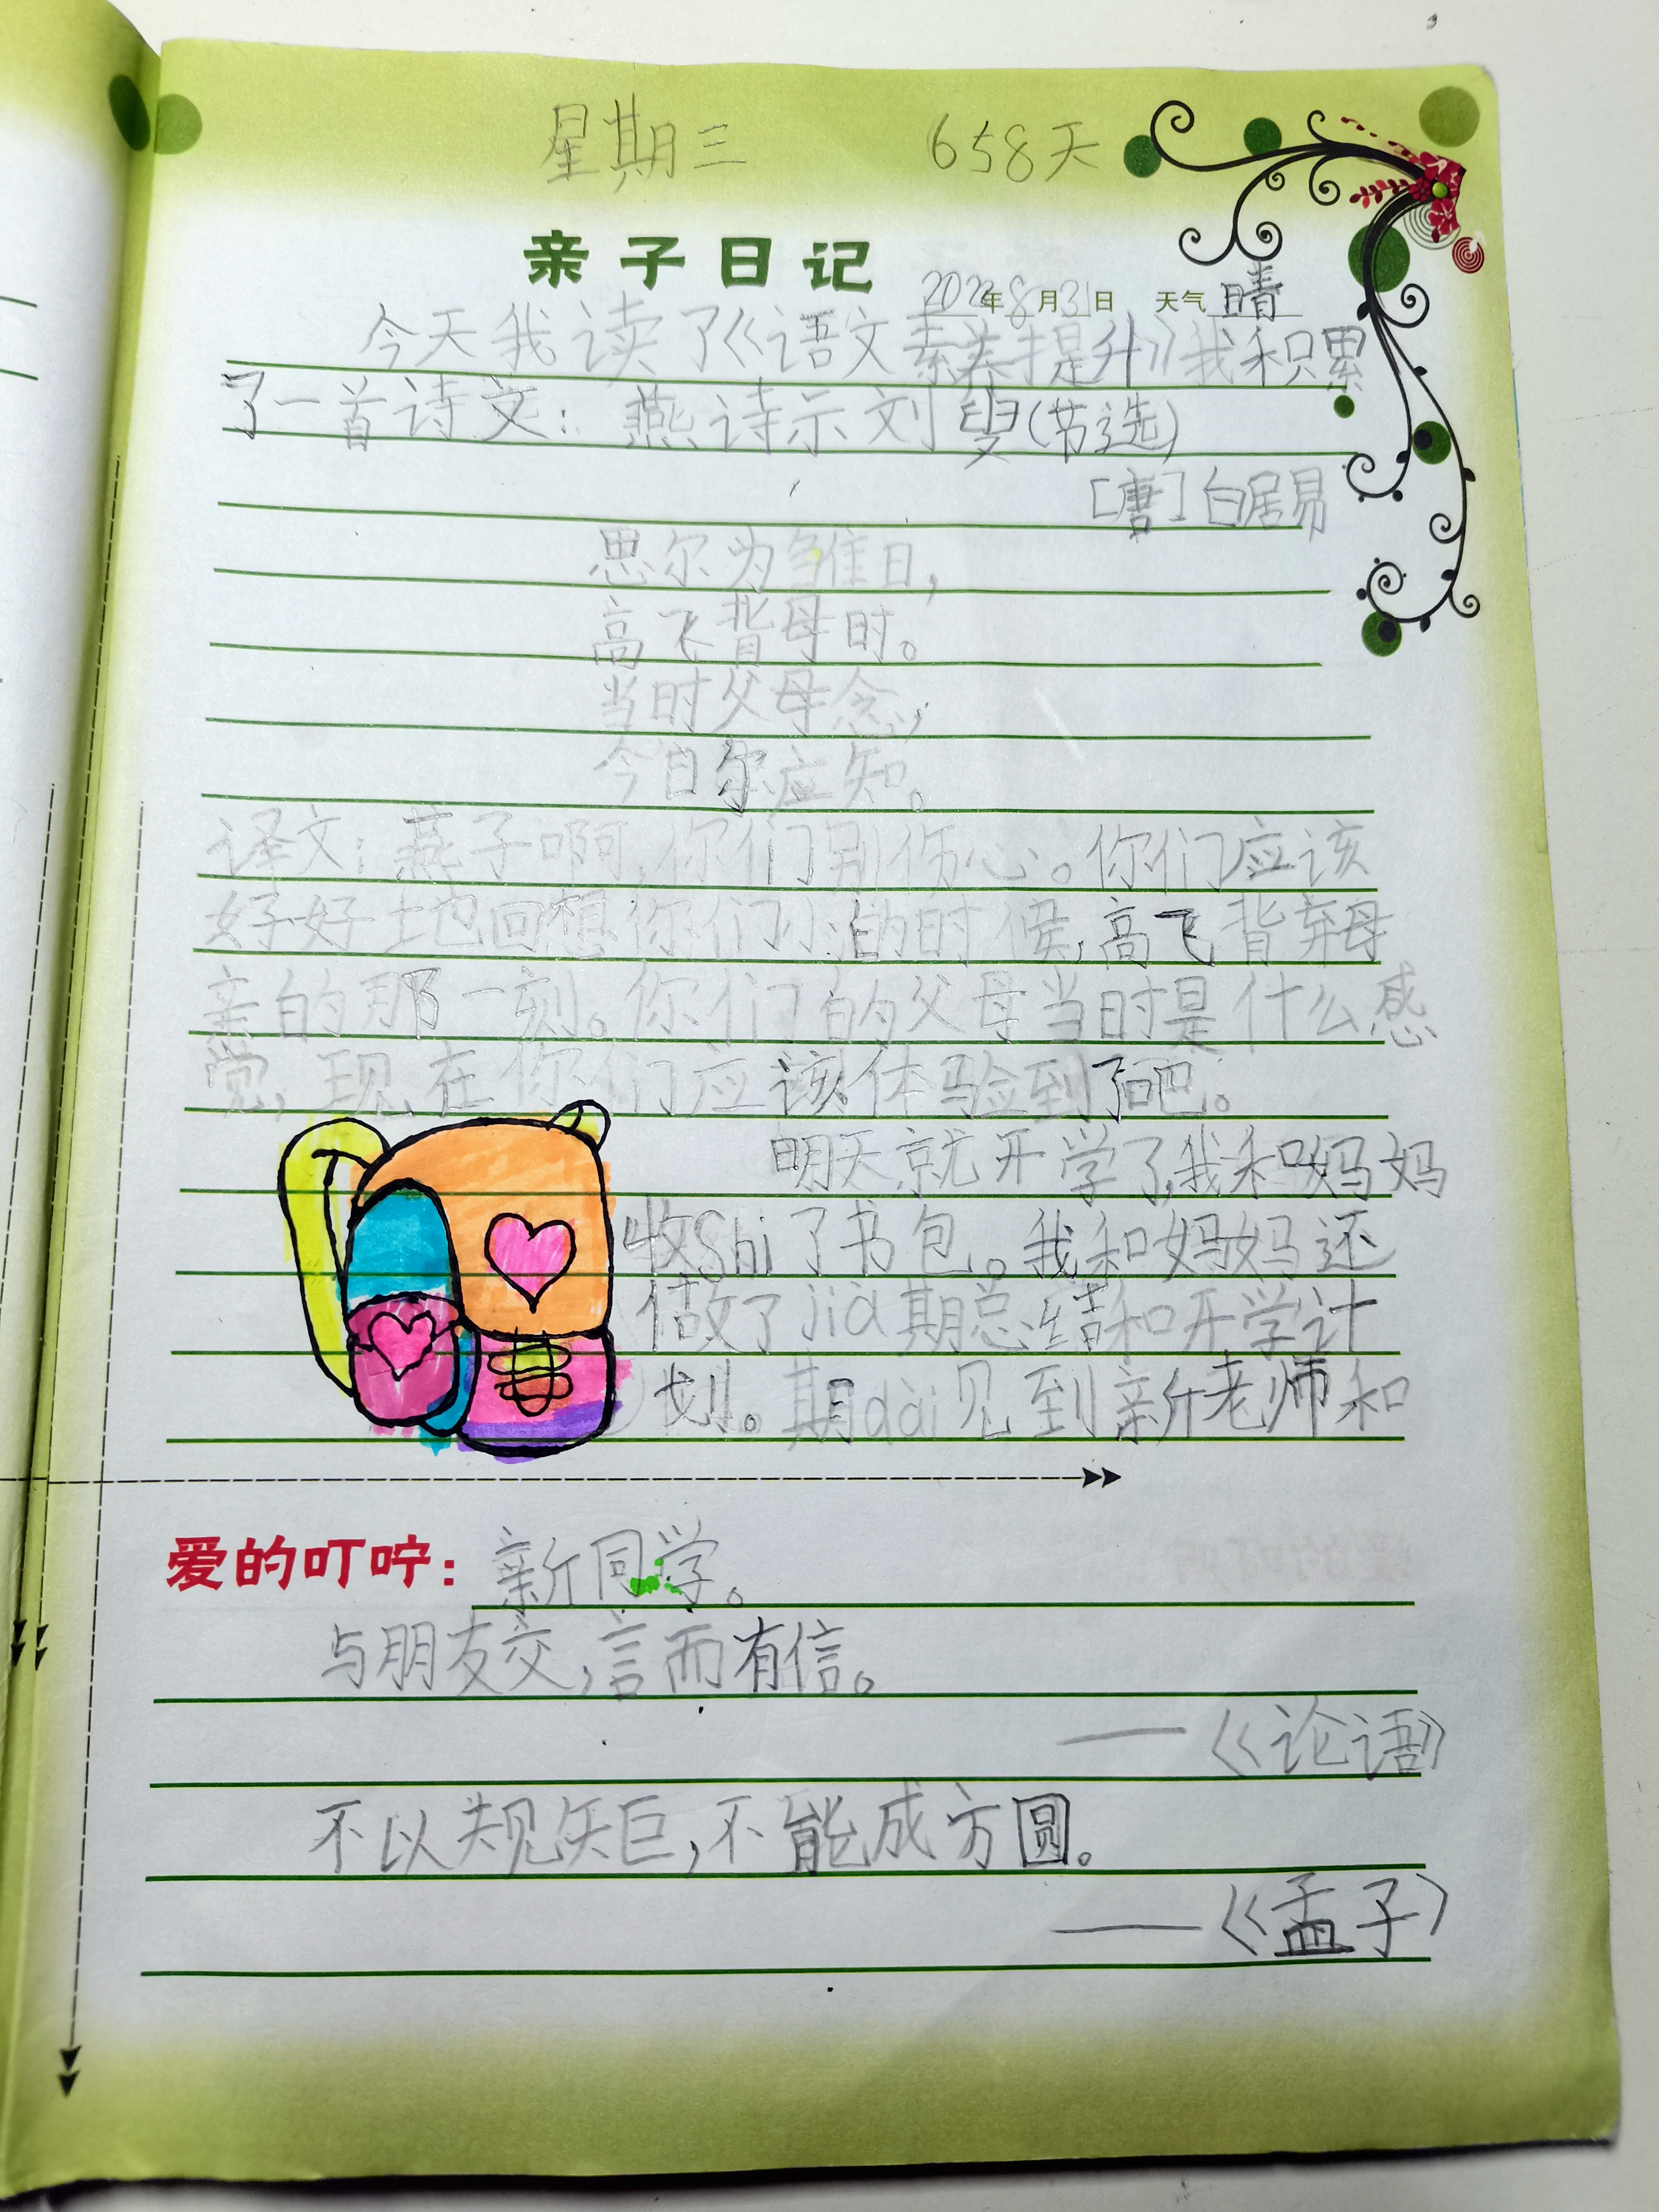 星期三 658天
亲子日记 2022年8月31日 天气晴
今天我读了《语文素养提升》我积累
了一首诗文：燕诗示刘叟(节选)
[唐]白居易
思尔为雏日，
高飞背母时。
当时父母念，
今日尔应知。
译文：燕子啊，你们别伤心。你们应该
好好地回想你们小的时候，高飞背弃母
亲的那一刻。你们的父母当时是什么感
觉，现在你们应该体验到了吧。
明天就开学了，我和妈妈
收shi了书包。我和妈妈还
做了jia期总结和开学计
划。期dai见到新老师和
爱的叮咛：新同学。
与朋友交，言而有信。
——《论语》
不以规矩，不能成方圆。
——《孟子》